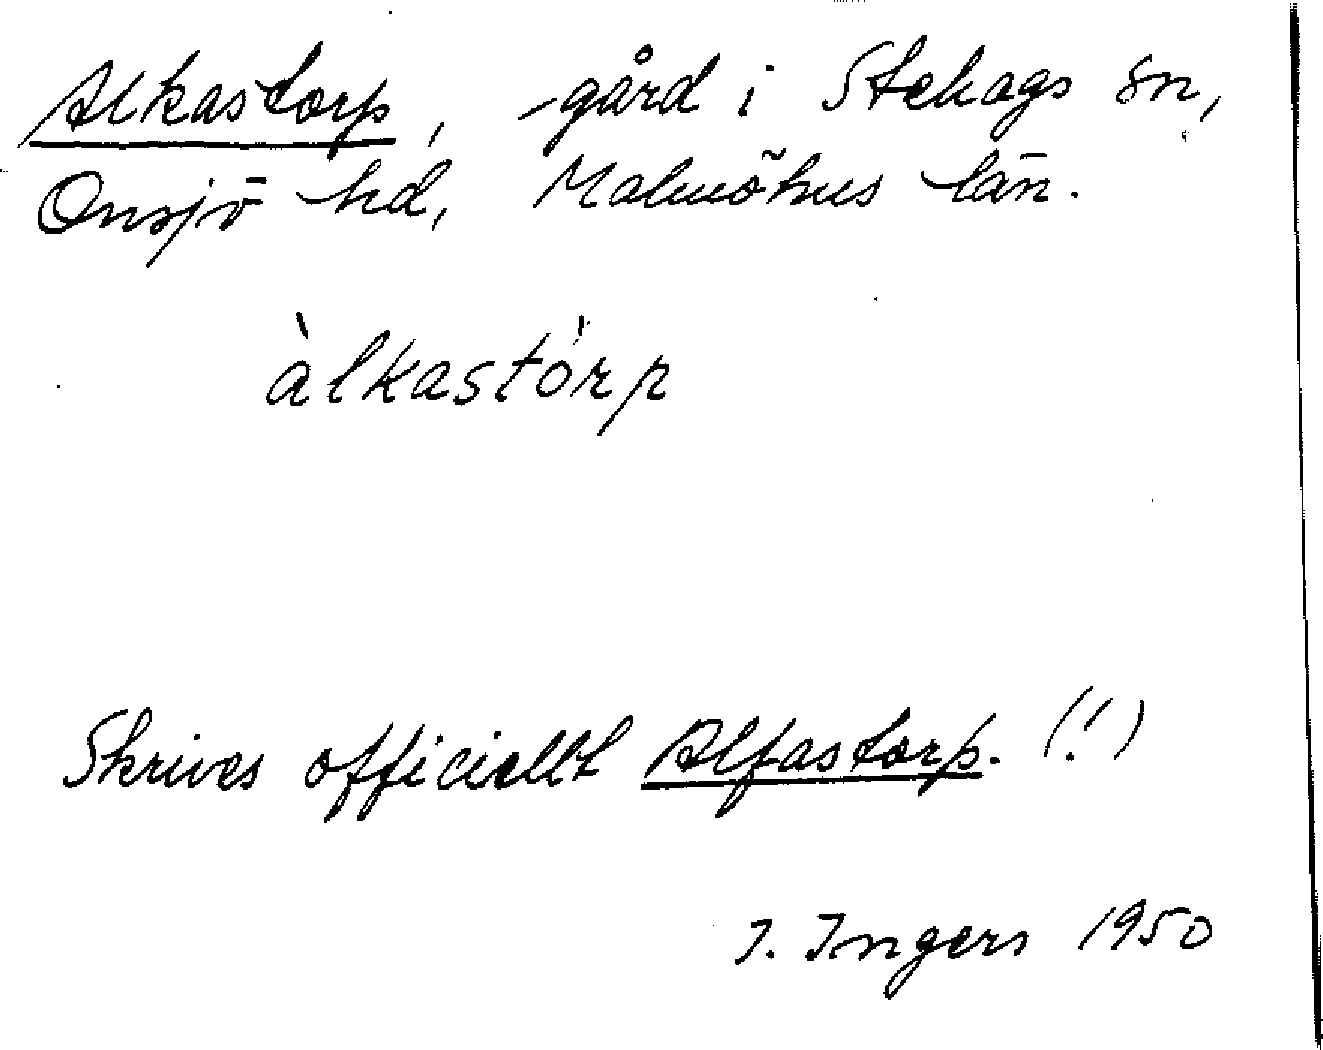 Alkastorp, gård i Stehags sn,
Onsjö hd, Malmöhus län.
àlkastórp
Skrives officiellt Alfastorp. (!)
I. Ingers 1950